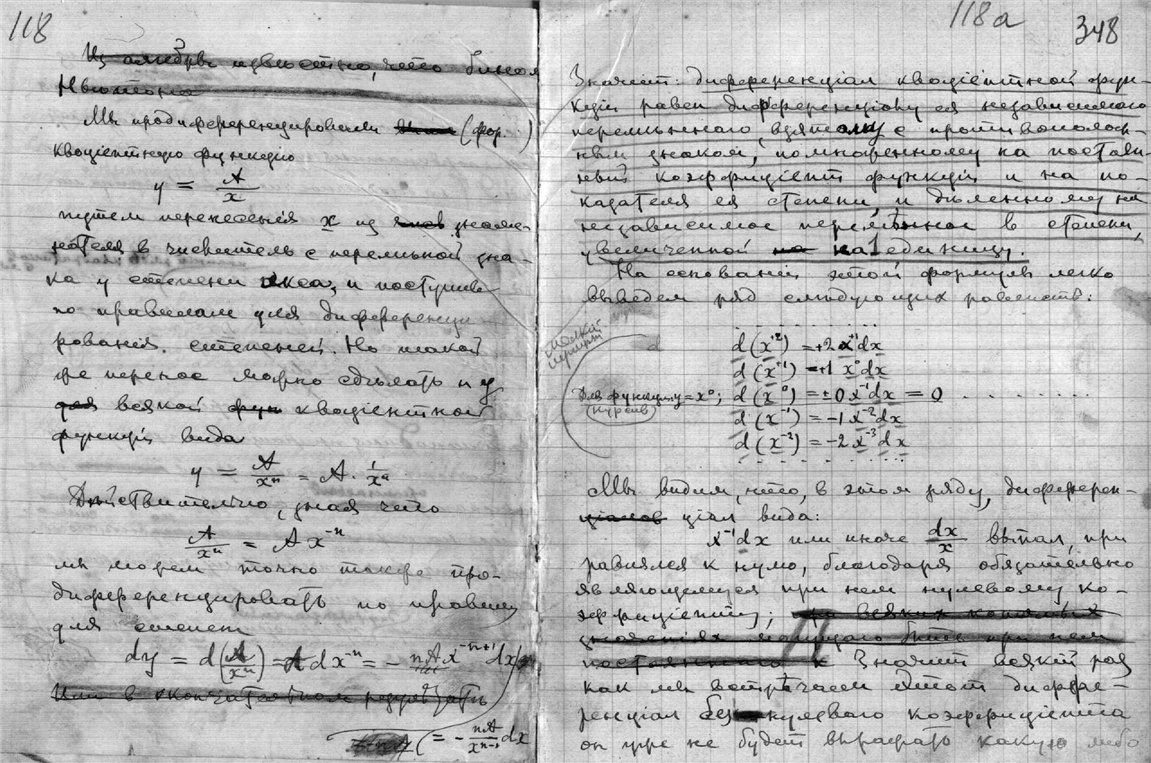 118
Из алгебры известно, что бином
Ньютона
Мы продифференцировали (фор. )
квоціентную функцію
y = A/x
путем перенесенія x из знаме-
нателя в числитель с переменой зна-
ка у степени икса, и поступив
по правилам для дифференци-
рования степеней. Но такой
же перенос можно сделать и у
для всякой фун квоціентной
функціи вида
y = A/xⁿ = A · 1/xⁿ
Действительно, зная что
A/xⁿ = A x⁻ⁿ
мы можем точно также про-
дифференцировать по правилу
для степени
dy = d(A/xⁿ) = A dx⁻ⁿ = - nA x⁻ⁿ⁺¹ dx
Или в окончательном
(= - nA/xⁿ⁻¹ dx
118а
348
Значит: дифференціал квоціентной фун-
кціи равен дифференціалу ея независимаго
переменнаго, взятому с противополож-
ным знаком, помноженному на постоян-
ный коэффиціент функціи и на по-
казателя ея степени, и деленному на
независимое переменное в степени,
увеличенной на 1 единицу.
На основаніи этой формулы легко
выведем ряд следующих равенств:
мелкий
d(x⁺²) = +2 x⁺¹dx
d(x⁺¹) = +1 x⁰dx
Для функции y = x⁰; d(x⁰) = ±0 x⁻¹dx = 0
(курсив)
d(x⁻¹) = -1 x⁻²dx
d(x⁻²) = -2 x⁻³dx
Мы видим, что, в этом ряду, дифферен-
ціалов ціал вида:
x⁻¹dx или иначе dx/x выпал, при
равнялся к нулю, благодаря обязательно
являющемуся при нем нулевому ко-
эффиціенту; во всяких
значениях могущаго быть при нем
постояннаго Значит всякій раз
как мы встречаем этот диффе-
ренціал без нулеваго коэффиціента
он уже не будет выражать какую либо